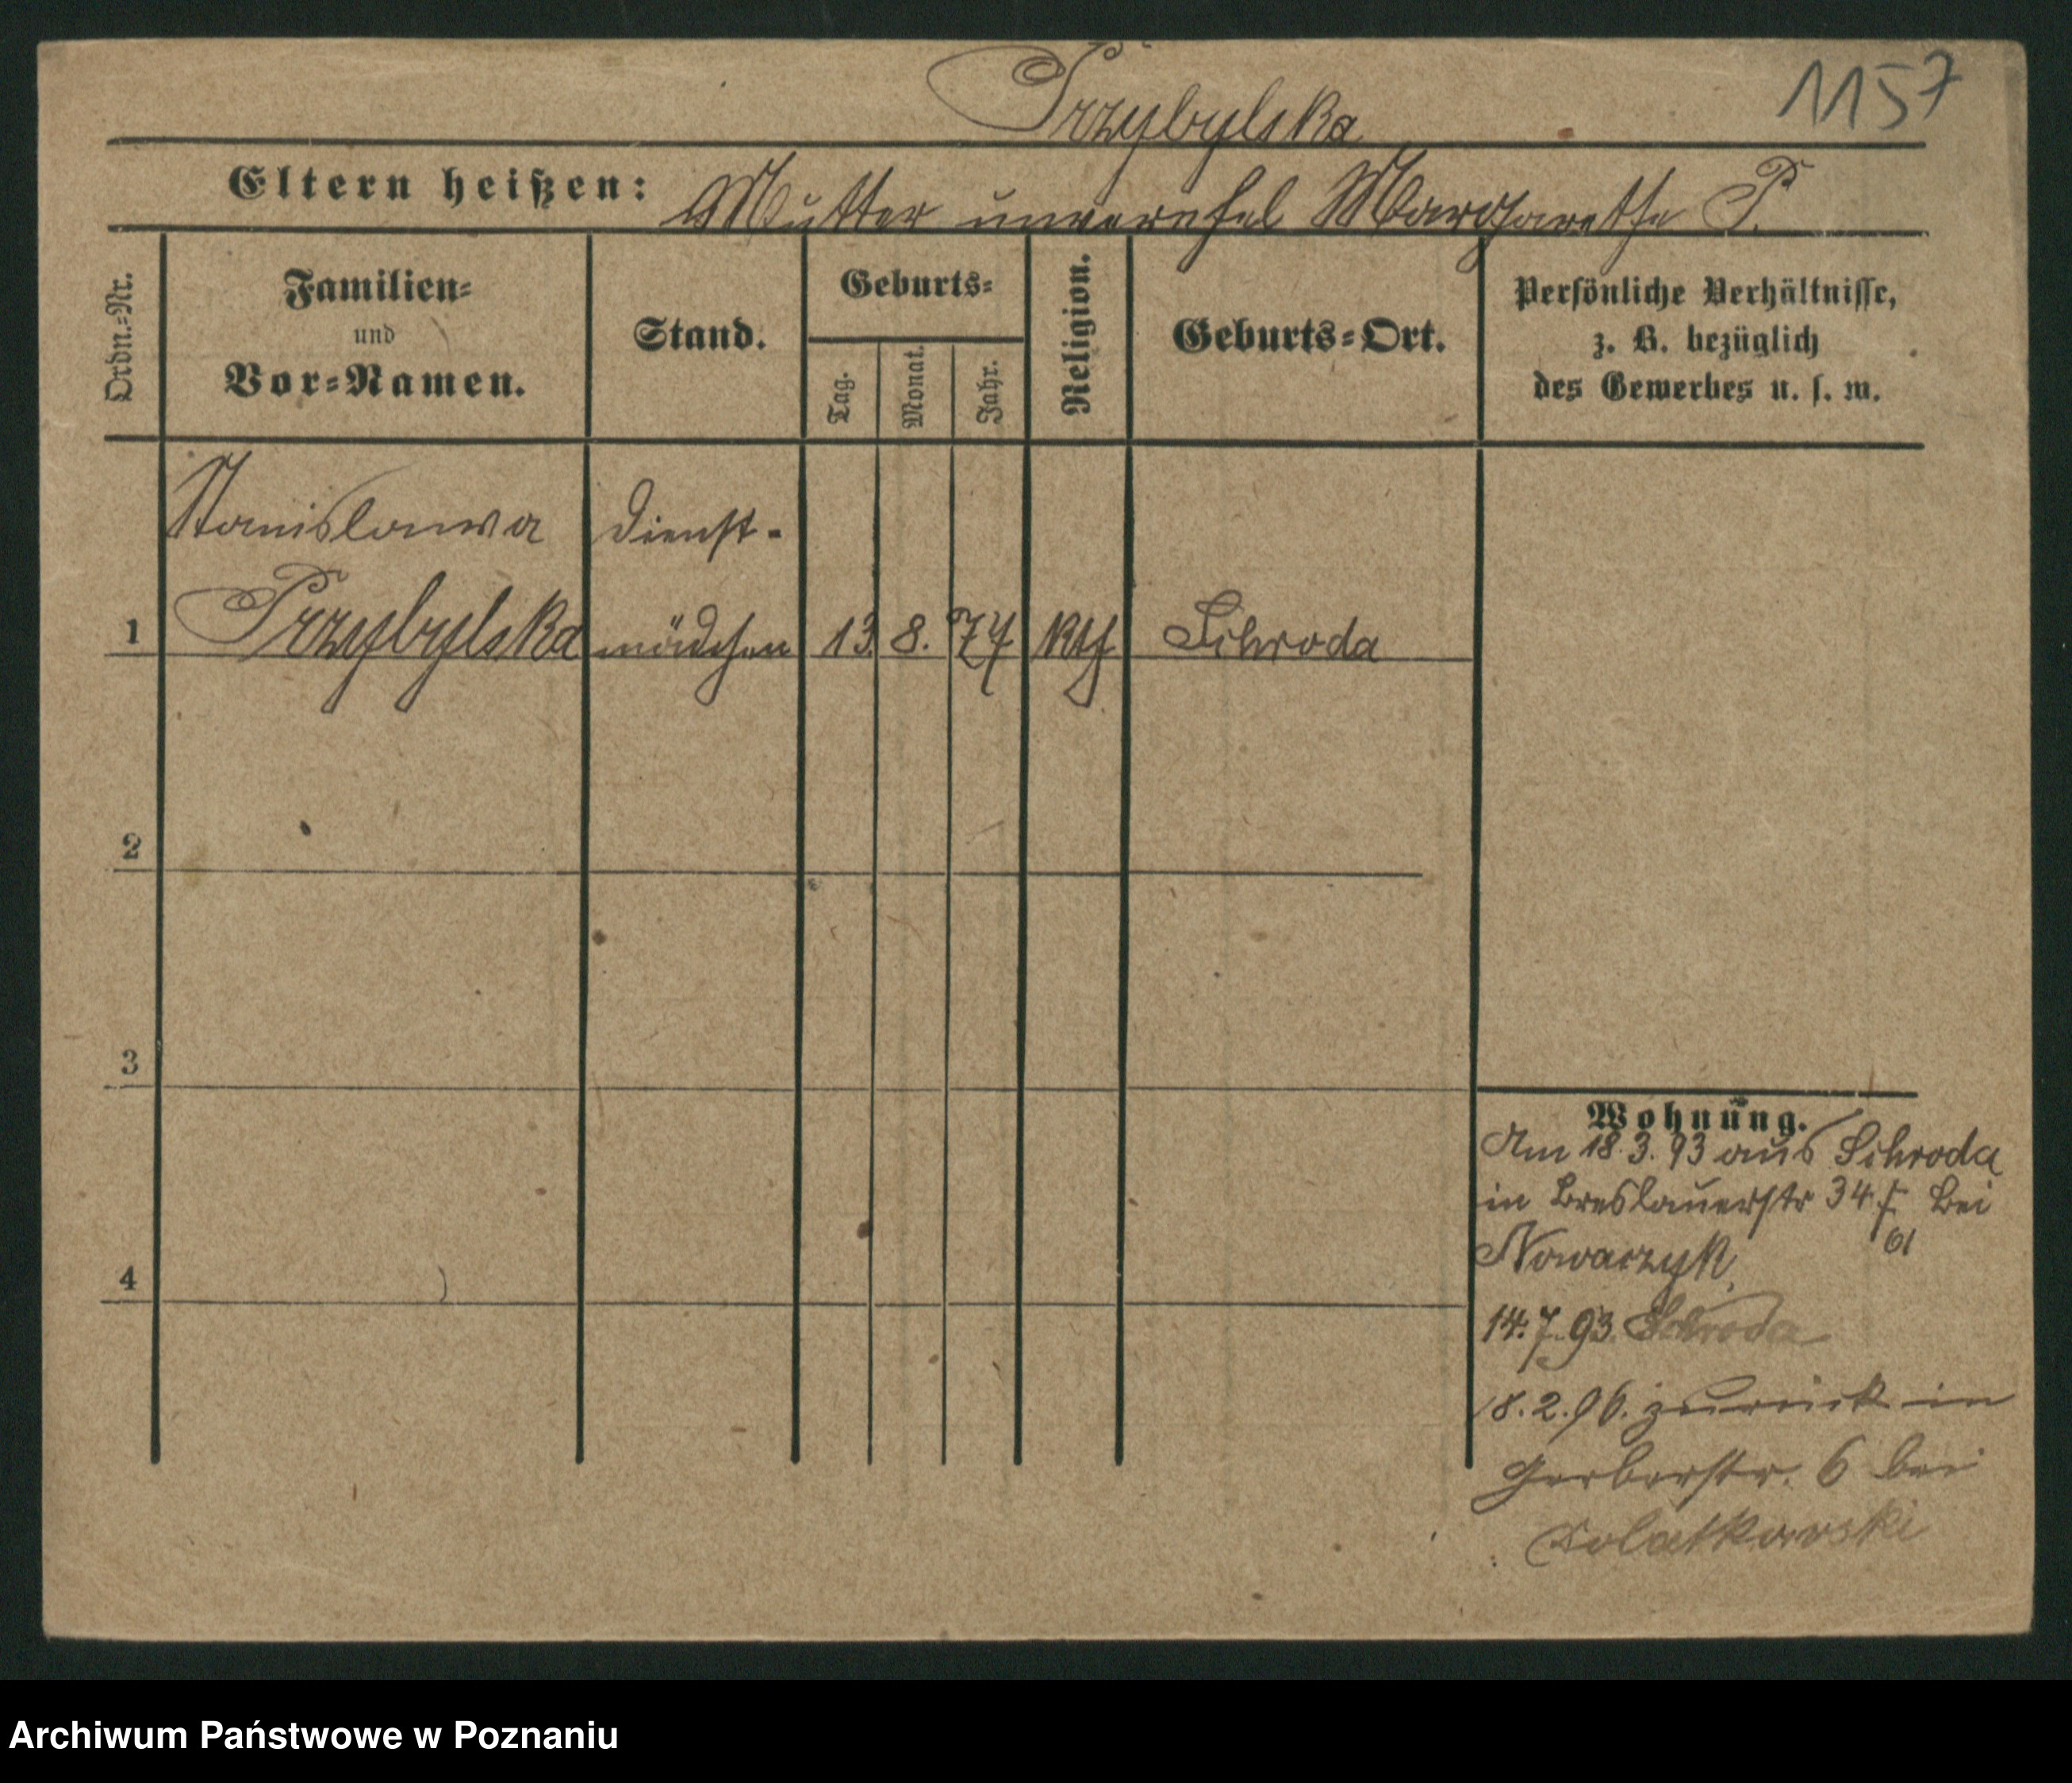 Przybylska
1157
Eltern heißen: Mutter unverehel Margarethe P.
Ordn.=Nr.
Familien=
und
Vor=Namen.
Stand.
Geburts=
Tag.
Monat.
Jahr.
Religion.
Geburts=Ort.
Persönliche Verhältnisse,
z. B. bezüglich
des Gewerbes u. s. w.
Stanislawa Dienst-
1 Przybylska mädchen 13. 8. 74 kth Schroda
2
3
4
Wohnung.
Am 18.3.93 aus Schroda
in Breslauerstr 34 bei
Nowaczyk
14.7.93. Schroda
18.2.96. zurück in
Gerberstr. 6 bei
Solatkowski
Archiwum Państwowe w Poznaniu